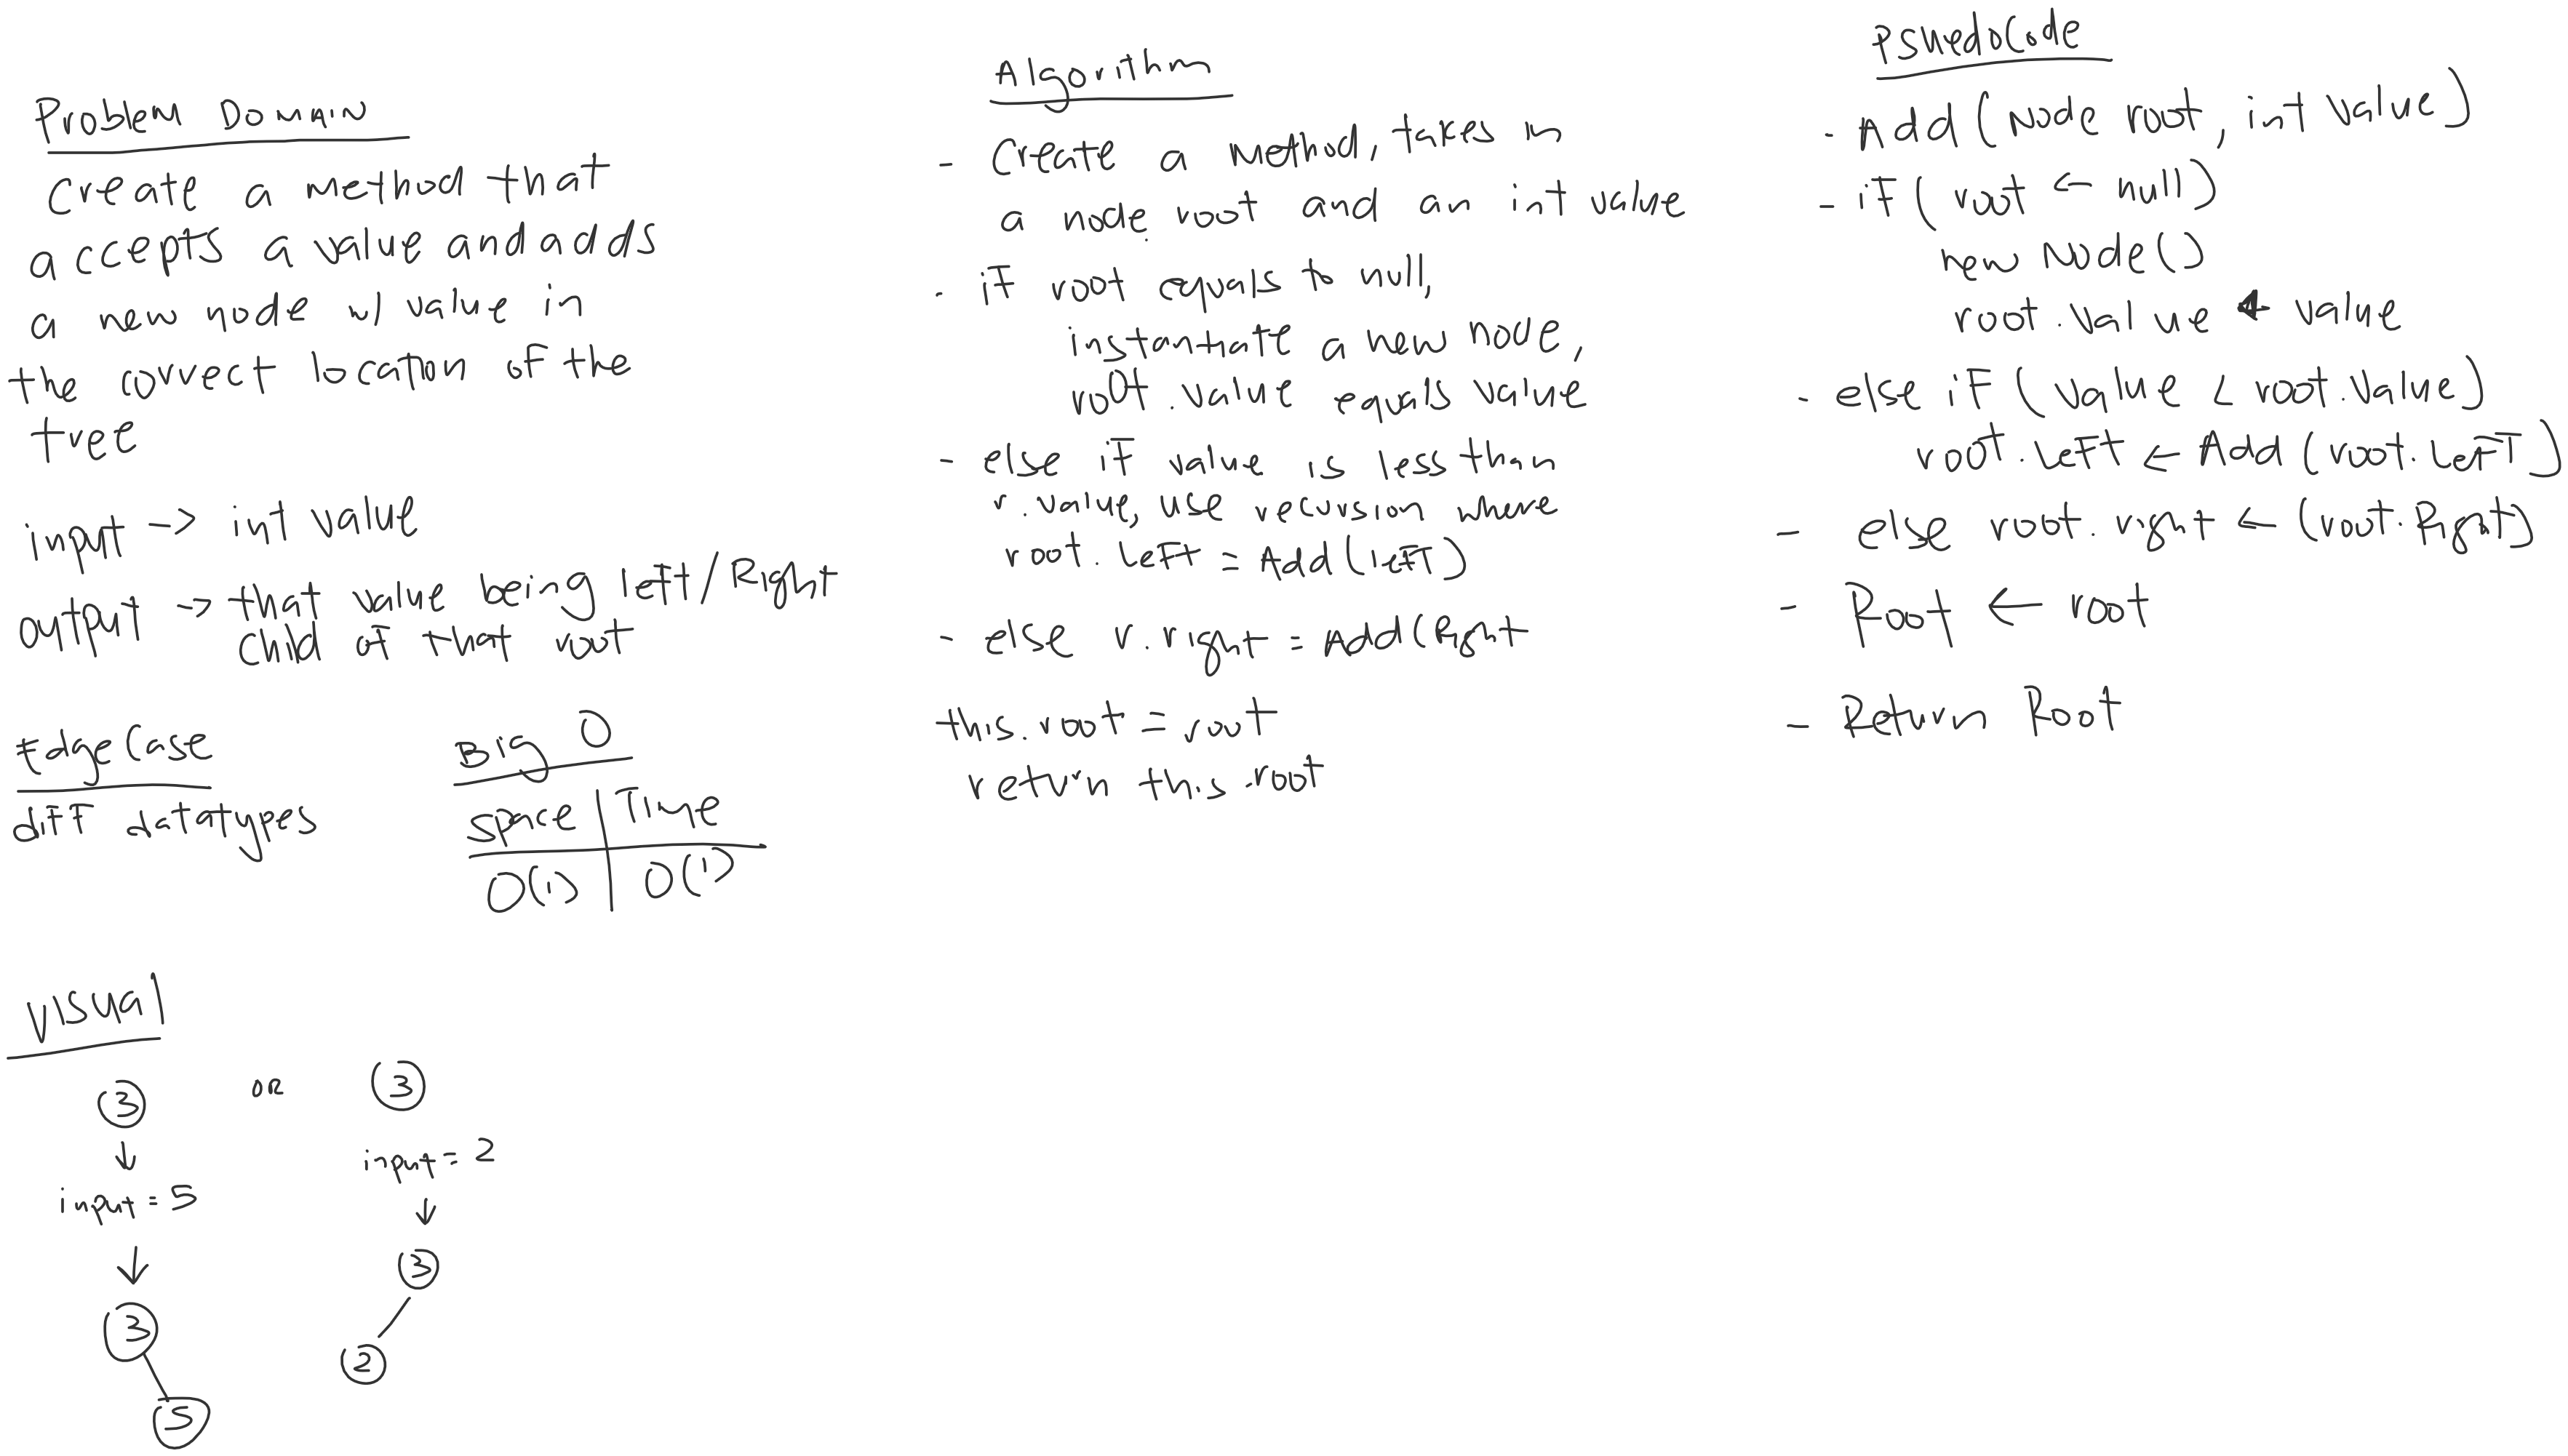 Problem Domain
Create a method that
accepts a value and adds
a new node w/ value in
the correct location of the
tree
input -> int value
output -> that value being left/Right
child of that root
EdgeCase
diff datatypes
Big O
space | Time
O(1) | O(1)
Visual
3 OR 3
input = 5
input = 2
3
5
3
2
Algorithm
- Create a method, takes in
a node root and an int value
- if root equals to null,
instantiate a new node,
root.value equals value
- else if value is less than
r.value, use recursion where
root.left = Add(left)
- else r.right = Add(Right
this.root = root
return this.root
PsuedoCode
- Add(Node root, int value)
- if(root <- null)
new Node()
root.value <- value
- else if(value < root.value)
root.left <- Add(root.left)
- else root.right <- (root.Right)
- Root <- root
- Return Root